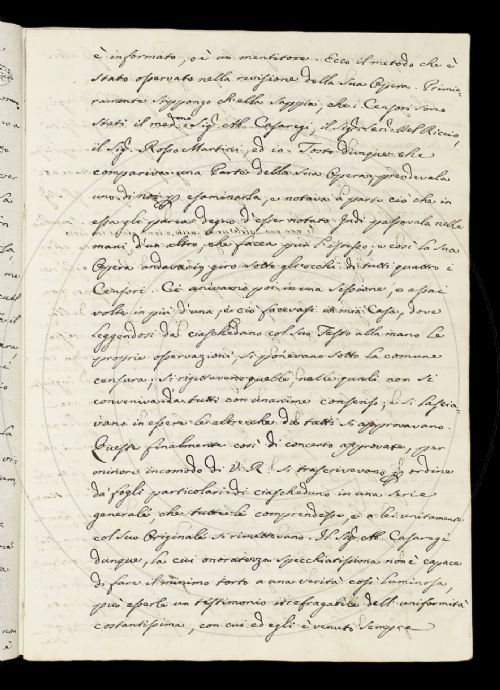 è informato, o è un mentitore. Ecco il metodo che è
stato osservato nella revisione della sua Opera. Primie-
ramente suppongo ch'ella sappia, che i Censori sono
stati il med.mo Sig. Ab. Casaregi, il Sig. Del Riccio,
il Sig. Rosso Martini, ed io. Tosto dunque che
compariva una Parte della sua Opera, prendevala
uno di noi ad esaminarla, e notava a parte ciò che in
essa gli parea degno d'esser notato. Indi passavala nelle
mani d'un altro, che facea pur l'istesso; e così la sua
Opera andava in giro sotto gli occhi di tutti quattro i
Censori. Ci univamo poi in una sessione, e assai
volte in più d'una, e ciò facevasi in mia Casa, dove
leggendosi da ciascheduno col suo Testo alla mano le
proprie osservazioni, si ponevano sotto la comune
censura; si rigettavano quelle, nelle quali non si
conveniva da tutti con unanime consenso, e si lascia-
vano in essere le altre che da tutti si approvavano.
Queste finalmente così di concerto approvate, per
minore incomodo di V. R. si trascrivevano per ordine
da fogli particolari di ciascheduno in una serie
generale che tutte le comprendesse, e a lei unitamente
col suo Originale si rimettevano. Il Sig. Ab. Casaregi
dunque, la cui onoratezza specchiatissima non è capace
di fare il minimo torto a una verità così luminosa,
può esserle un testimonio irrefragabile dell'uniformità
costantissima, con cui ed egli è venuto sempre